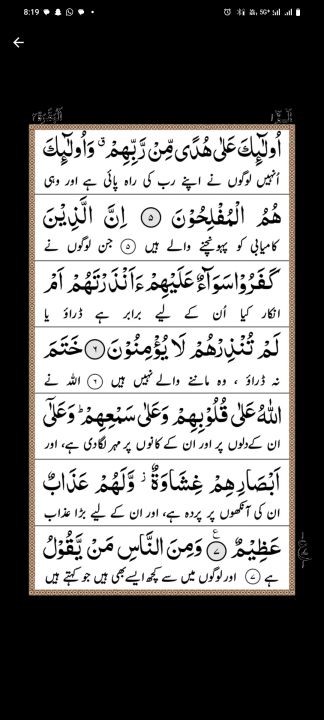 8:19
5G+
اُولٰٓئِكَ عَلٰى هُدًى مِّنْ رَّبِّهِمْ ۗ وَاُولٰٓئِكَ
اُنہیں لوگوں نے اپنے رب کی راہ پائی ہے اور وہی
هُمُ الْمُفْلِحُوْنَ ۝۵ اِنَّ الَّذِيْنَ
کامیابی کو پہونچنے والے ہیں ۵ جن لوگوں نے
كَفَرُوْا سَوَآءٌ عَلَيْهِمْ ءَاَنْذَرْتَهُمْ اَمْ
انکار کیا اُن کے لیے برابر ہے ڈراؤ یا
لَمْ تُنْذِرْهُمْ لَا يُؤْمِنُوْنَ ۝۶ خَتَمَ
نہ ڈراؤ ، وہ ماننے والے نہیں ہیں ۶ اللہ نے
اللّٰهُ عَلٰى قُلُوْبِهِمْ وَعَلٰى سَمْعِهِمْ ؕ وَعَلٰٓى
ان کے دلوں پر اور ان کے کانوں پر مہر لگا دی ہے، اور
اَبْصَارِهِمْ غِشَاوَةٌ ز وَّلَهُمْ عَذَابٌ
ان کی آنکھوں پر پردہ ہے، اور ان کے لیے بڑا عذاب
عَظِيْمٌ ۝۷ ع وَمِنَ النَّاسِ مَنْ يَّقُوْلُ
ہے ۷ اور لوگوں میں سے کچھ ایسے بھی ہیں جو کہتے ہیں